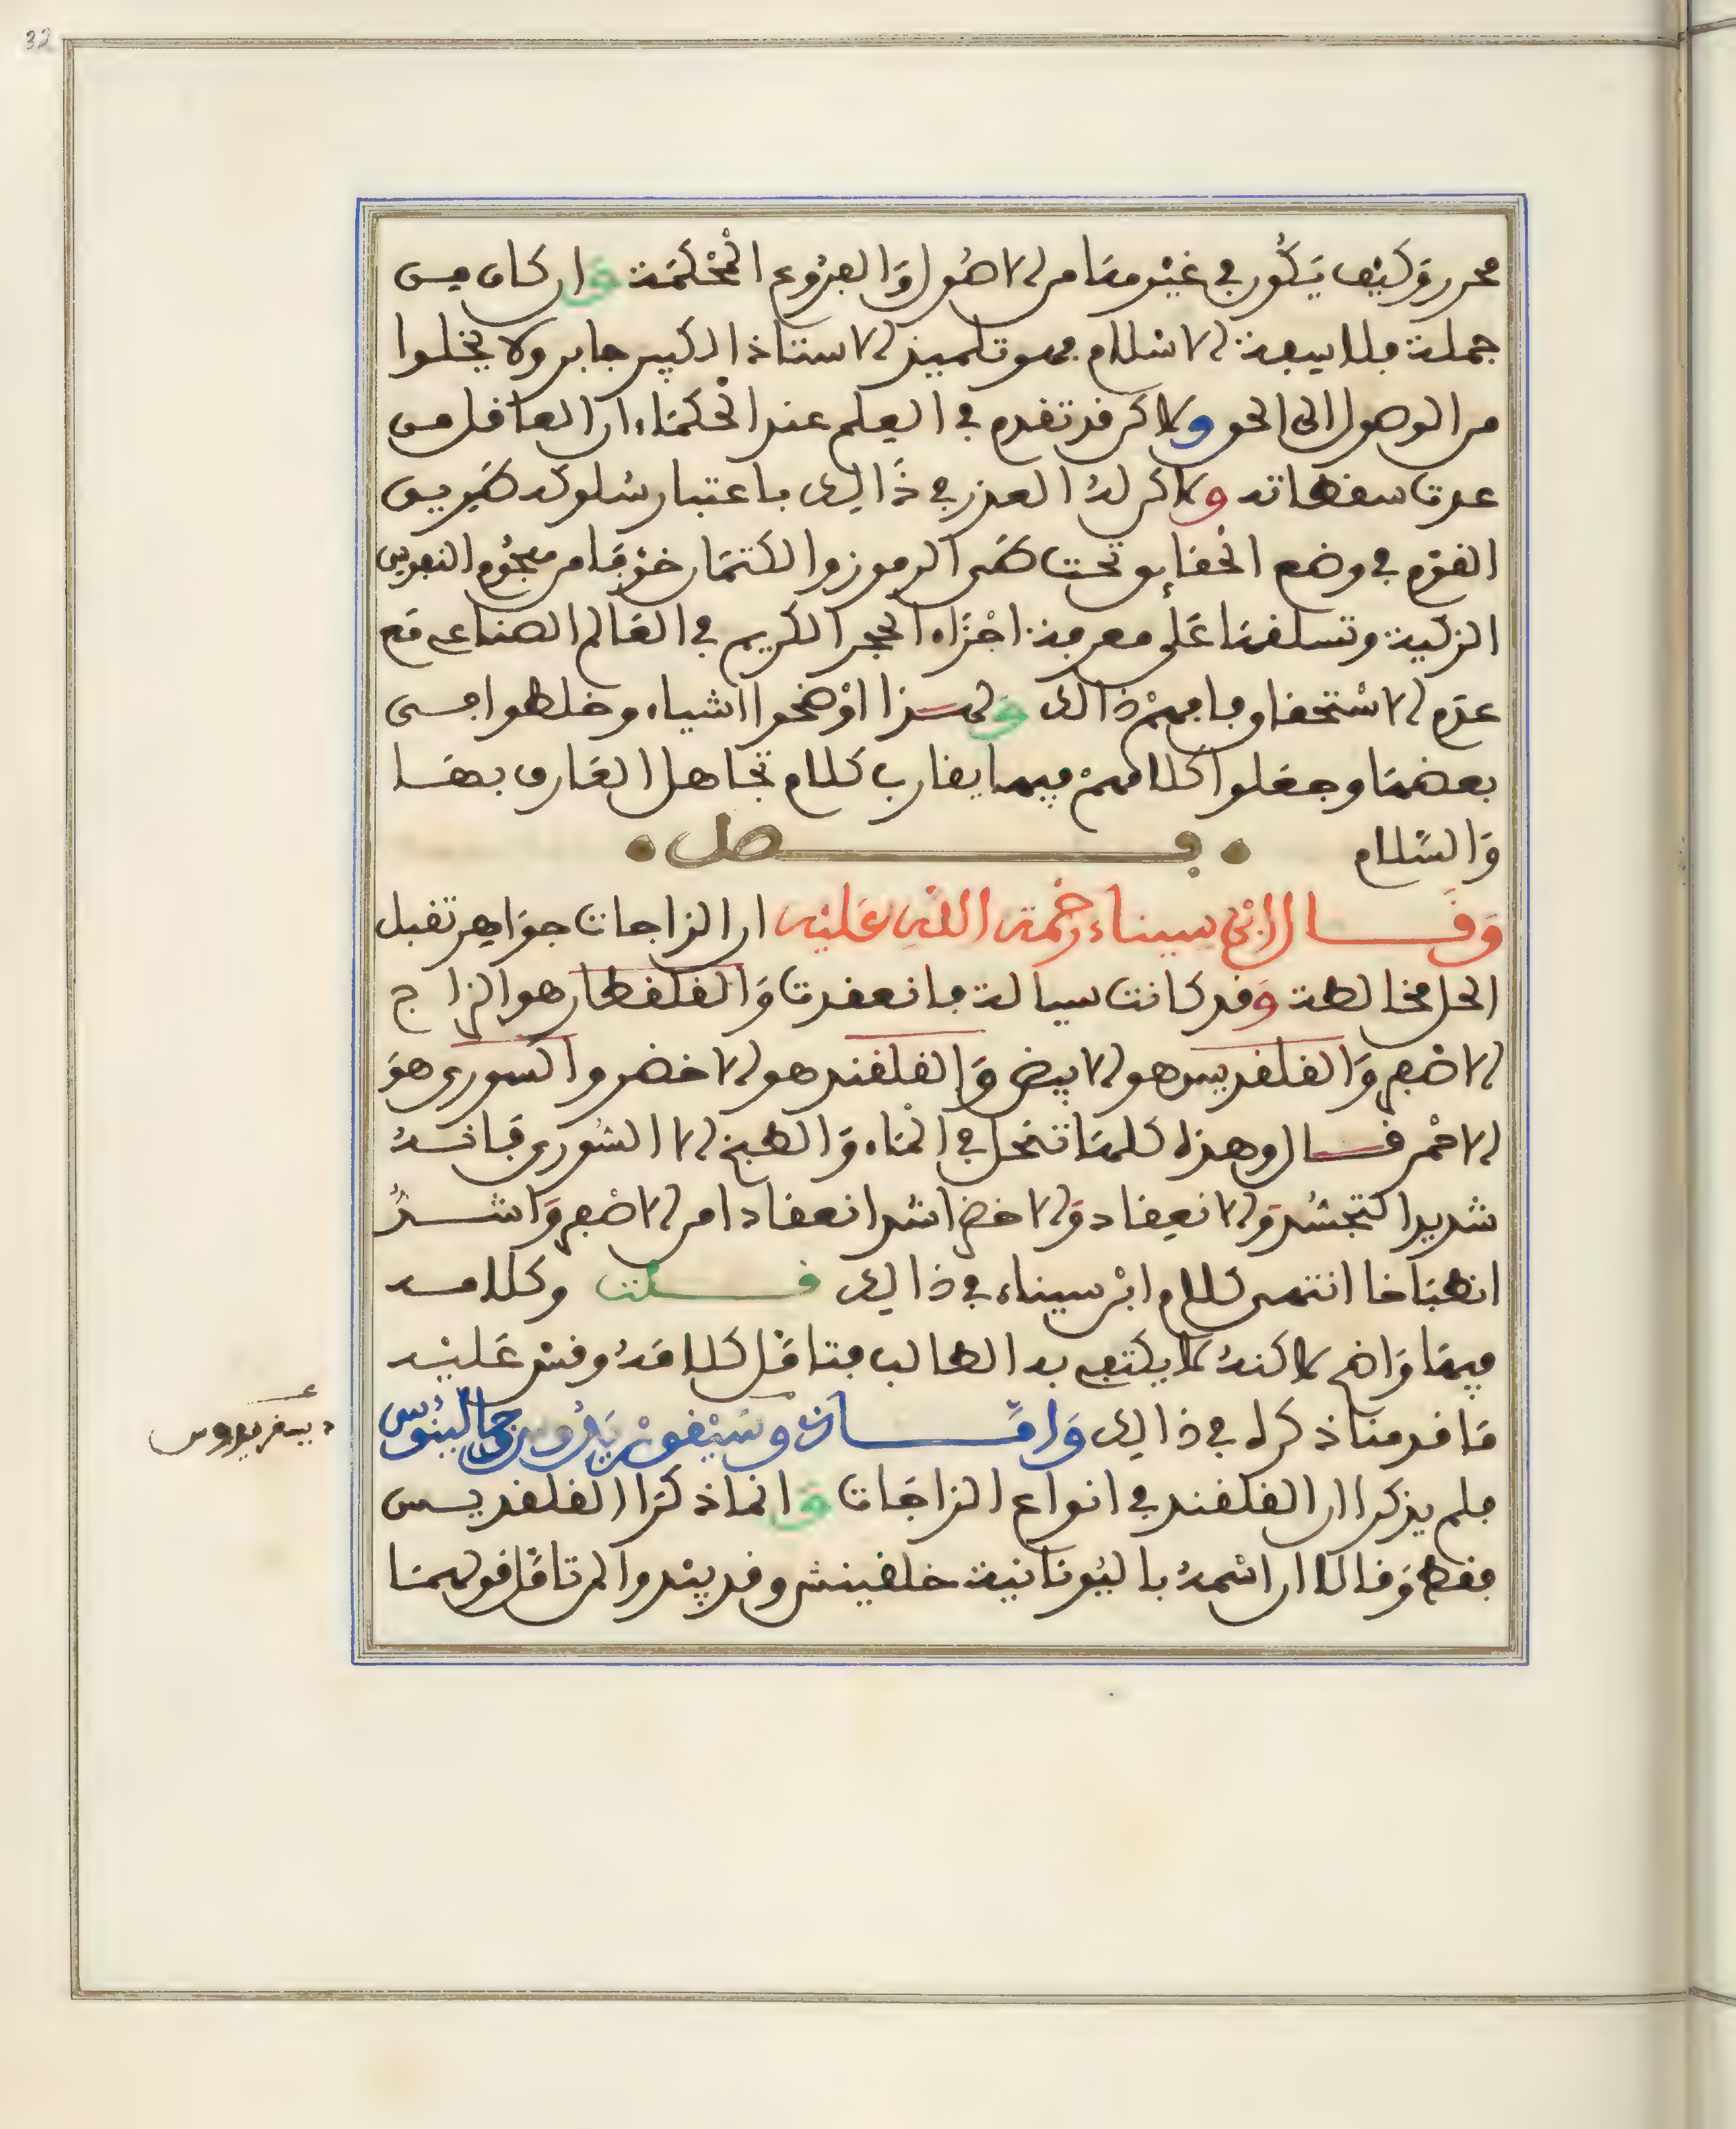 32
محرر وكيف يكون في غير مقام من الاصول والفروع المحكمة وان كان من
جملة فلاسفة الاسلام فهو تلميذ الاستاذ الكبير جابر ولا يخلوا
من الوصول الى الحق ولاكن قد تقدم في العلم عند الحكماء ان العاقل من
عدت سقطاته ولاكن له العذر في ذالك باعتبار سلوكه طريق
القوم في وضع الحقايق تحت طي الرموز والكتمان خوفا من هجوم النفوس
الزكية وتسلقها على معرفة اجزاء الحجر الكريم في العالم الصناعي مع
عدم الاستحقاق فافهم ذالك ولهذا اوضحوا اشياء وخلطوا في
بعضها وجعلوا كلامهم فيها يقارب كلام تجاهل العارف بها
والسلام
• فصل •
وقال ابن سيناء رحمة الله عليه ان الزاجات جواهر تقبل
الحل مخالطة وقد كانت سيالة فانعقدت والقلقطار هو الزاج
الاصفر والقلقديس هو الابيض والقلقند هو الاخضر والسوري هو
الاحمر قال وهذه كلها تنحل في الماء والطبخ الا السوري فانه
شديد التجسد والانعقاد والاخضر اشد انعقادا من الاصفر واشد
انطباخا انتهى كلام ابن سيناء في ذالك قلت وكلامه
فيها واضح لاكنه لا يكتفي به الطالب فتامل كلامه وقس عليه
ما قدمنا ذكره في ذالك واما ن وسيقوريدوس وجالينوس
فلم يذكرا ان القلقند في انواع الزاجات وانما ذكرا القلقديس
فقط وقالا ان اسمه باليونانية خلقينش وقد يبدوا لمن تامل قولهما
ديسقريدوس